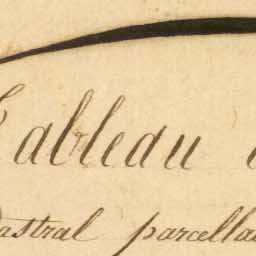 Tableau
cadastral parcellai